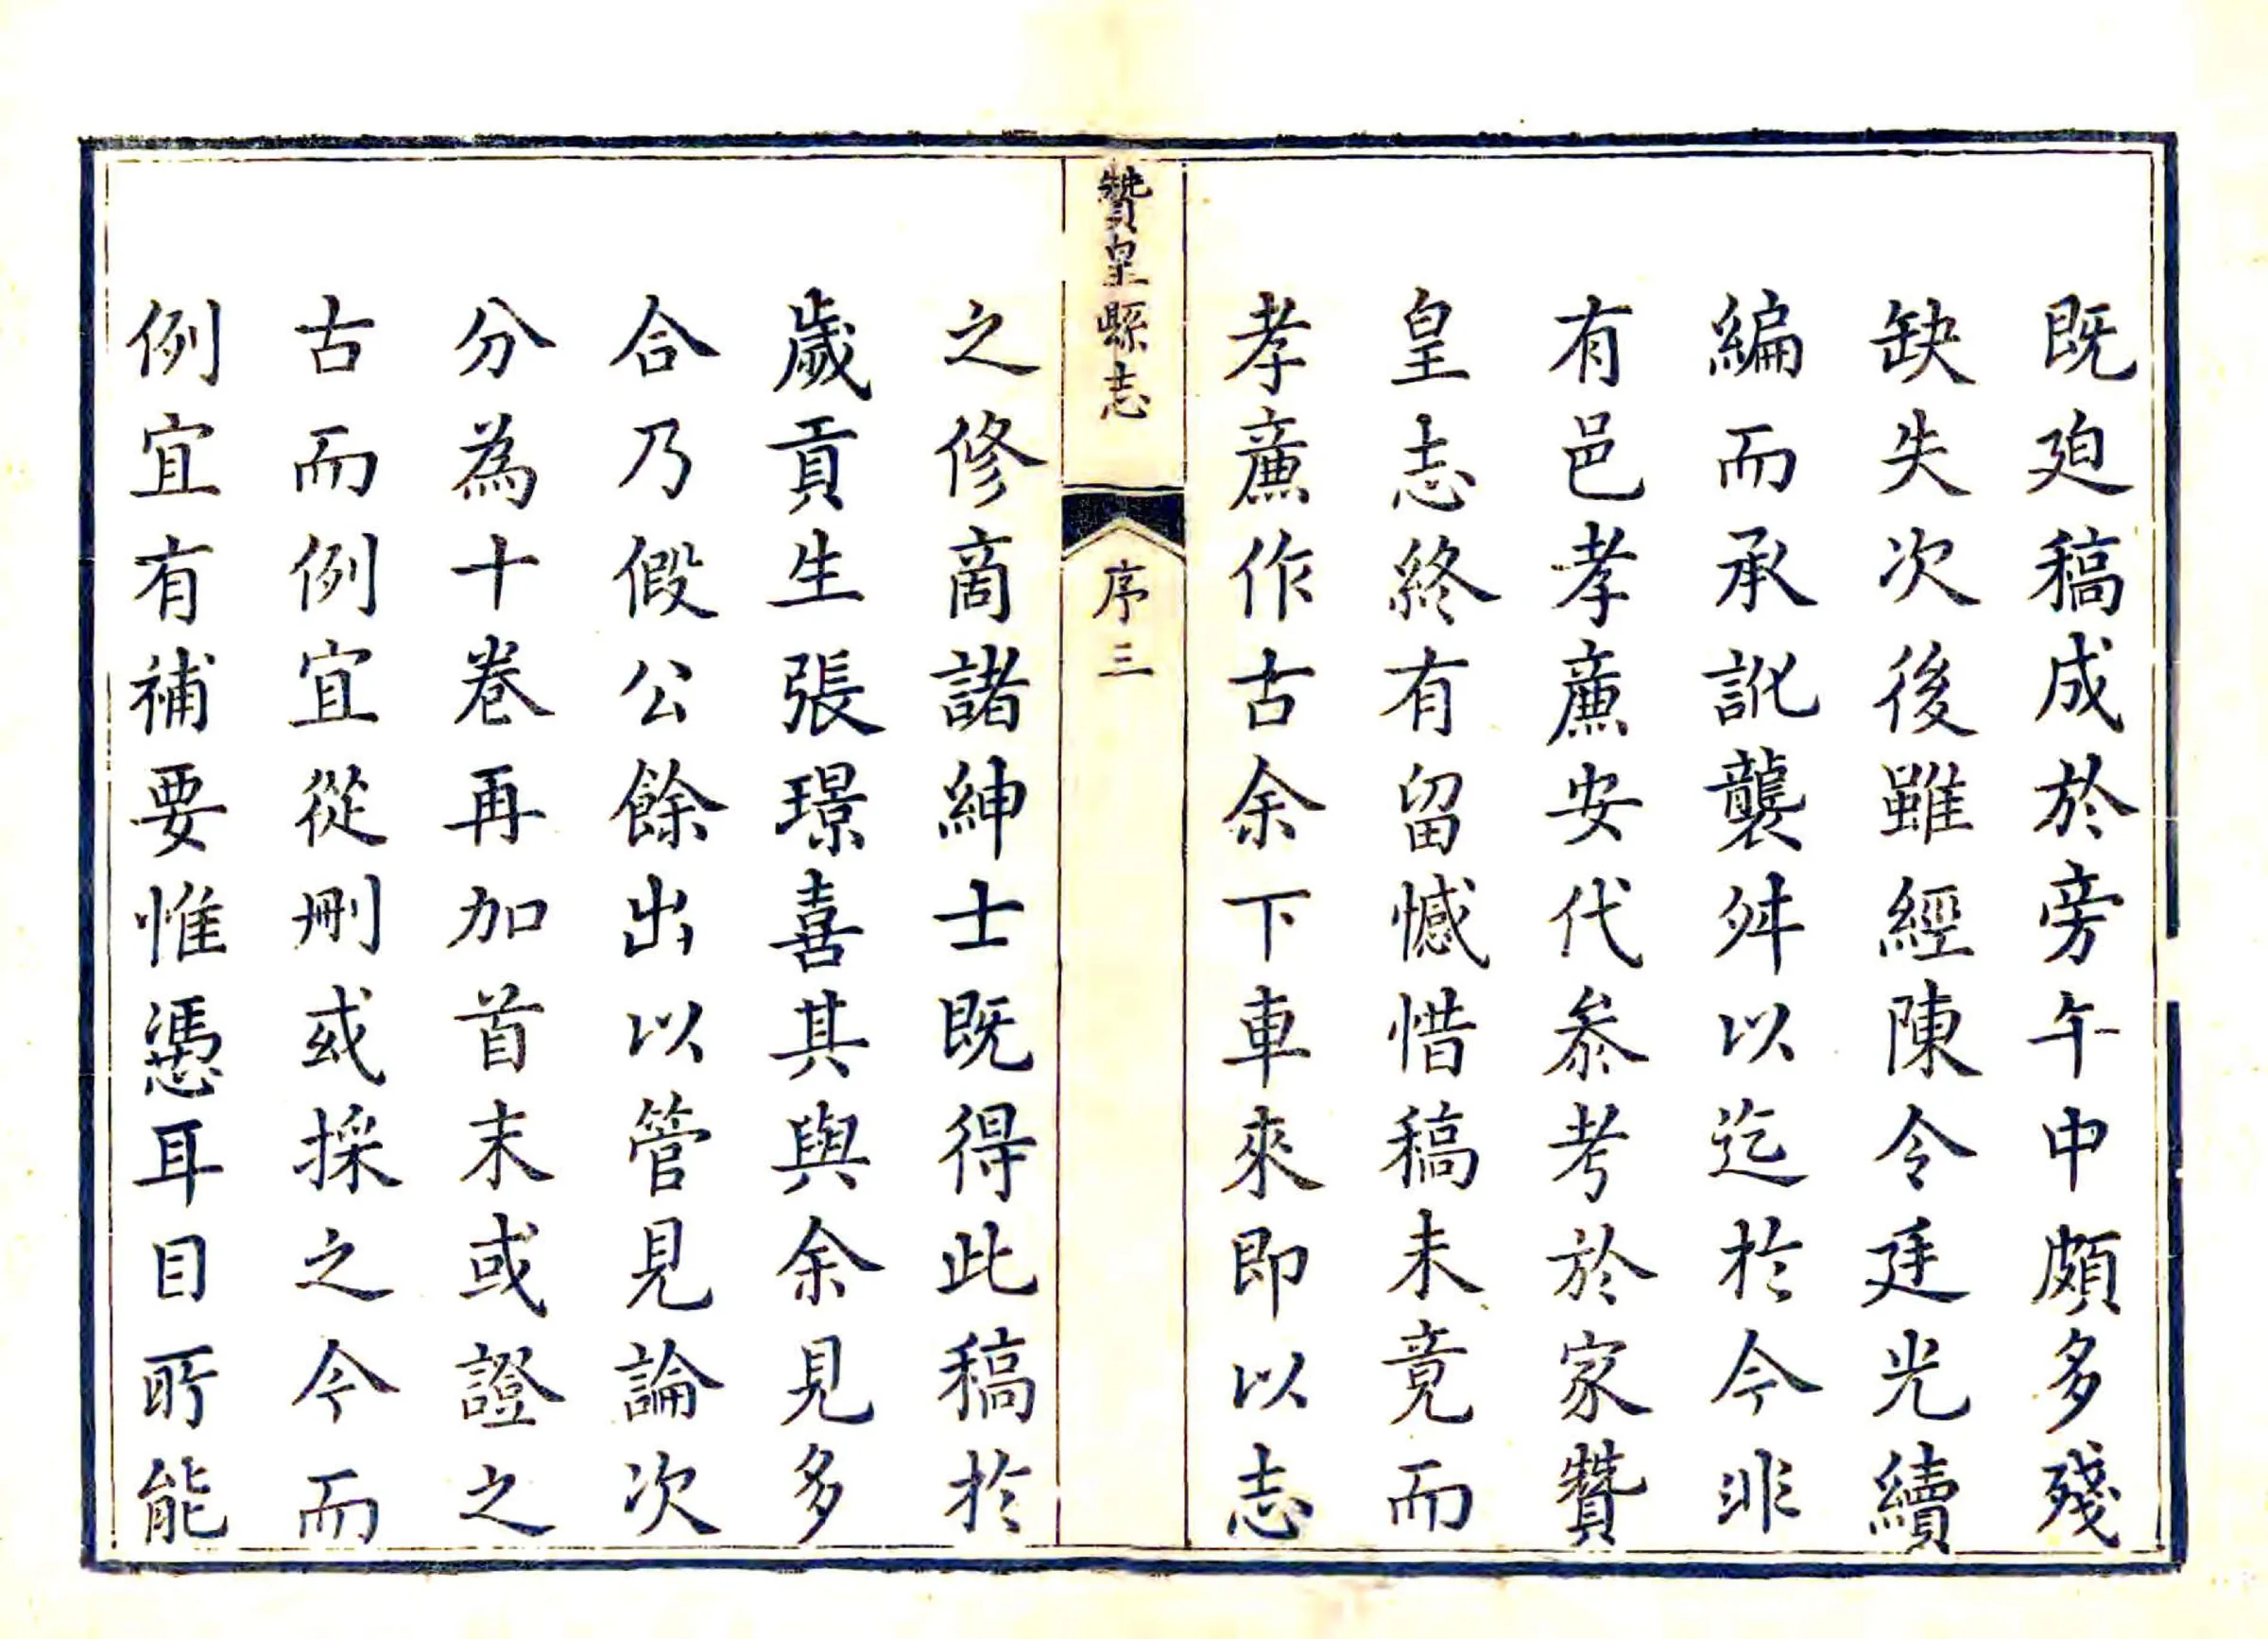 既廹稿成於旁午中頗多殘
缺失次後雖經陳令廷光續
編而承訛襲舛以迄於今非
有邑孝廉安代叅考於家贊
皇志終有留憾惜稿未竟而
孝廉作古余下車來即以志
贊皇縣志
序三
之修啇諸紳士既得此稿於
歲貢生張璟喜其與余見多
合乃假公餘出以管見論次
分為十卷再加首末或證之
古而例宜從刪或採之今而
例宜有補要惟憑耳目所能